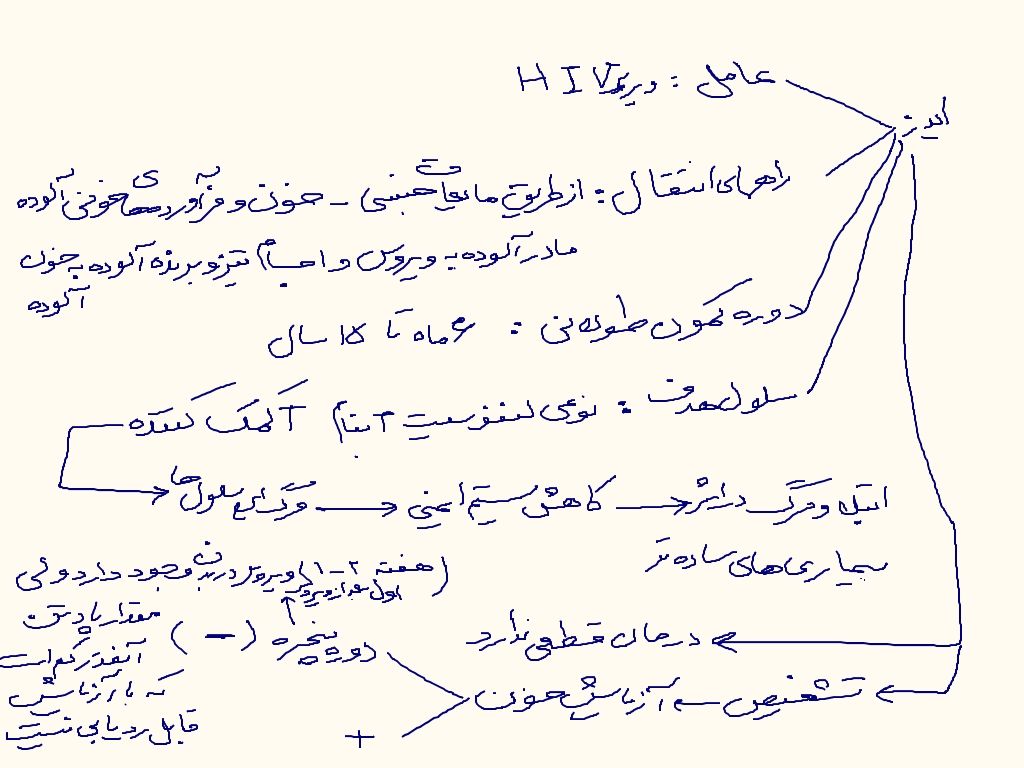 عامل : ویروس HIV
ایدز
راههای انتقال : از طریق مایعات جنسی - خون و فرآورده‌های خونی آلوده
مادر آلوده به ویروس و اجسام تیز و برنده آلوده به خون
آلوده
دوره کمون طولانی : ۶ ماه تا ۱۵ سال
سلول هدف : نوعی لنفوسیت T بنام T کمک کننده
مرگ این سلول ها → کاهش سیستم ایمنی → ابتلا و مرگ در اثر
بیماری های ساده تر
(هفته ۲-۱ ویروس در بدن وجود دارد ولی
اول بعد از ویروس
مقدار پادتن
درمان قطعی ندارد
دوره پنجره (-)
آنقدر کم است
که با آزمایش
قابل ردیابی نیست
تشخیص آزمایش خون
+